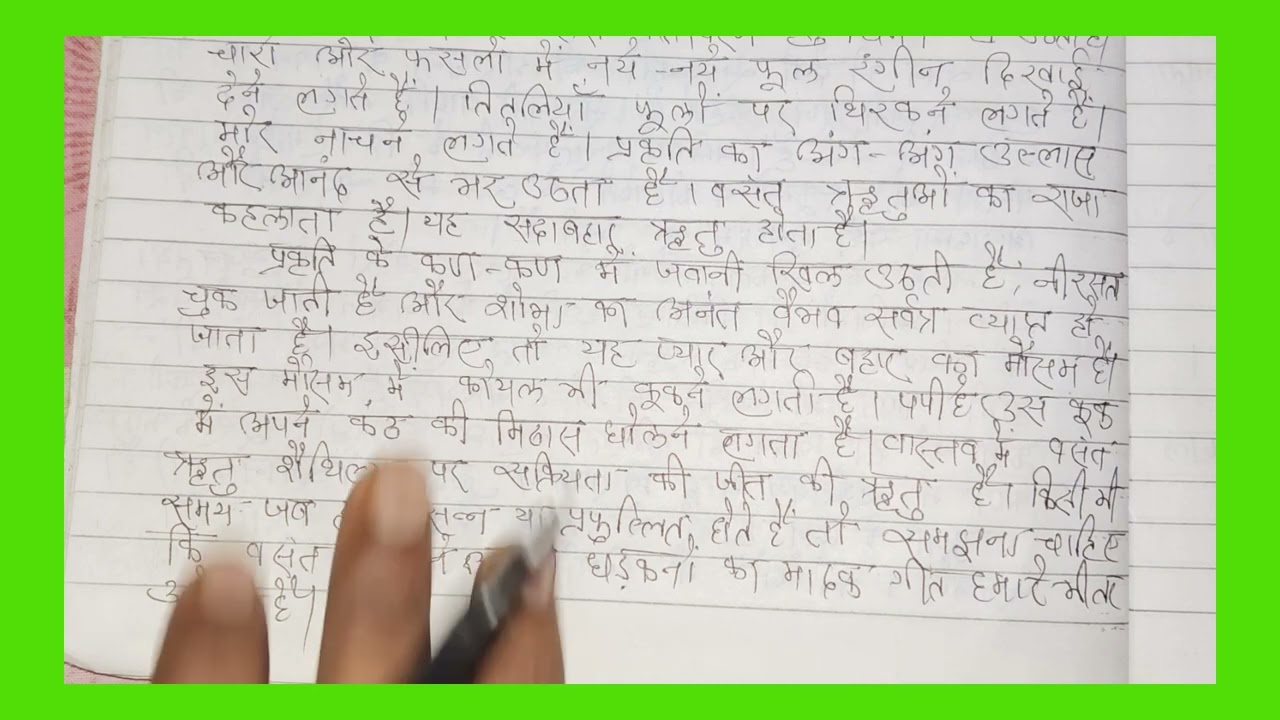 चारों ओर फसलों में नये-नये फूल रंगीन दिखाई
देने लगते हैं। तितलियाँ फूलों पर थिरकने लगते हैं।
मोर नाचने लगते हैं। प्रकृति का अंग-अंग उल्लास
और आनंद से भर उठता है। वसंत ऋतुओं का राजा
कहलाता है। यह सदाबहार ऋतु होता है।
प्रकृति के कण-कण में जवानी खिल उठती है, नीरसत
चुक जाती है और शोभा का अनंत वैभव सर्वत्र व्याप्त हो
जाता है। इसीलिए तो यह प्यार और बहार का मौसम है।
इस मौसम में कोयल भी कूकने लगती है। पपीहे उस कूक
में अपने कंठ की मिठास घोलने लगता है। वास्तव में वसंत
ऋतु पर सक्रियता की जीत की ऋतु है। किसी भी
समय जब या प्रफुल्लित होते हैं तो समझना चाहिए
कि वसंत धड़कनों का मादक गीत हमारे भीतर
है।